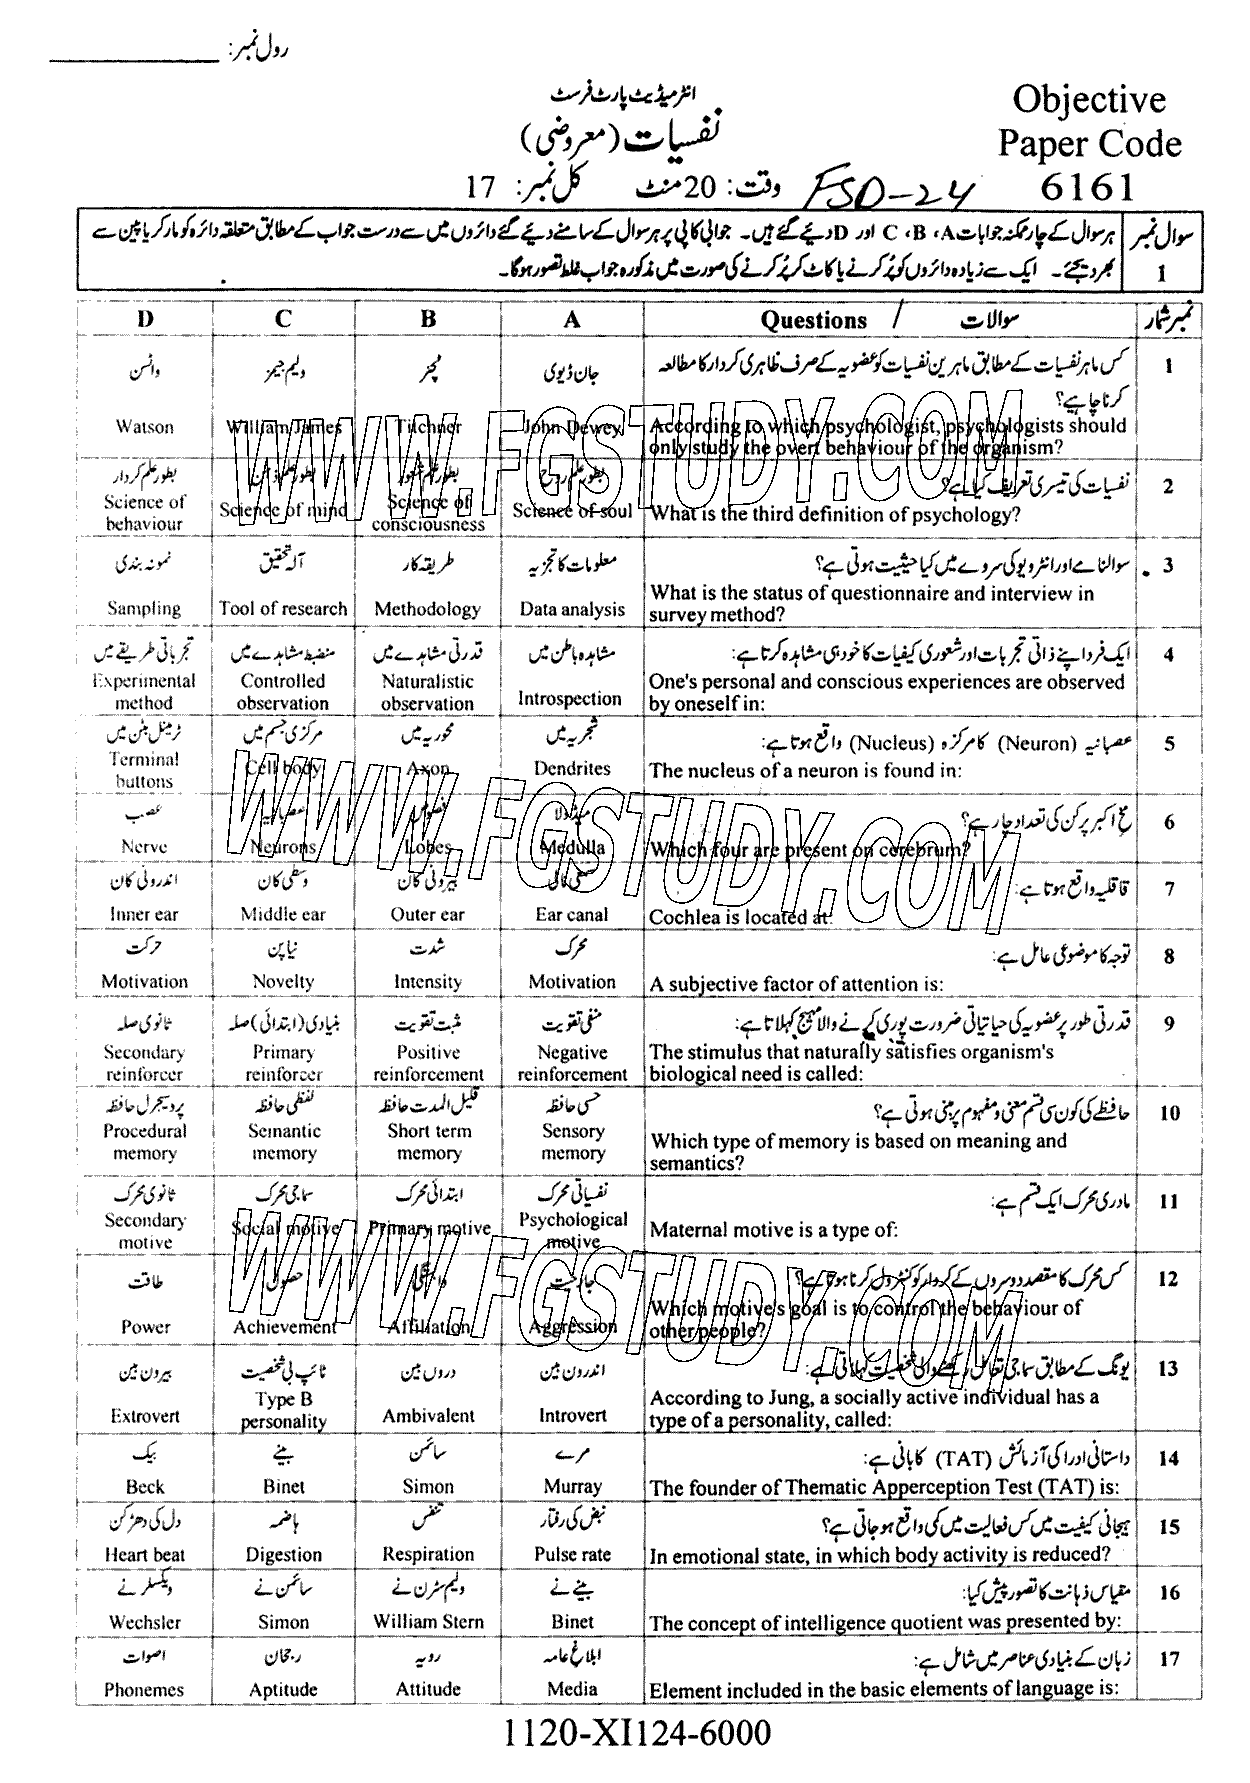 رول نمبر:
انٹرمیڈیٹ پارٹ فرسٹ
Objective
نفسیات (معروضی)
Paper Code
وقت: 20 منٹ کل نمبر: 17
FSD-24
6161
سوال نمبر 1
ہر سوال کے چار ممکنہ جوابات A، B، C اور D دیئے گئے ہیں۔ جوابی کاپی پر ہر سوال کے سامنے دیئے گئے دائروں میں سے درست جواب کے مطابق متعلقہ دائرہ کو مارکر یا پین سے
بھر دیجئے۔ ایک سے زیادہ دائروں کو پُر کرنے یا کاٹ کر پُر کرنے کی صورت میں مذکورہ جواب غلط تصور ہوگا۔
D C B A Questions / سوالات نمبر شمار
1 کس ماہر نفسیات کے مطابق ماہرین نفسیات کو عضویہ کے صرف ظاہری کردار کا مطالعہ
کرنا چاہیے؟
According to which psychologist, psychologists should
only study the overt behaviour of the organism?
جان ڈیوی ٹچنر ولیم جیمز واٹسن
Watson William James Titchner John Dewey
2 نفسیات کی تیسری تعریف کیا ہے؟
What is the third definition of psychology?
بطور علم روح بطور علم شعور بطور علم ذہن بطور علم کردار
Science of behaviour Science of mind Science of consciousness Science of soul
3 سوالنامے اور انٹرویو کی سروے میں کیا حیثیت ہوتی ہے؟
What is the status of questionnaire and interview in
survey method?
معلومات کا تجزیہ طریقہ کار آلہ تحقیق نمونہ بندی
Sampling Tool of research Methodology Data analysis
4 ایک فرد اپنے ذاتی تجربات اور شعوری کیفیات کا خود ہی مشاہدہ کرتا ہے:
One's personal and conscious experiences are observed
by oneself in:
مشاہدہ باطن میں قدرتی مشاہدے میں منضبط مشاہدے میں تجرباتی طریقے میں
Experimental method Controlled observation Naturalistic observation Introspection
5 عصبانیہ (Neuron) کا مرکزہ (Nucleus) واقع ہوتا ہے:
The nucleus of a neuron is found in:
شجریہ میں محوریہ میں مرکزی جسم میں ٹرمینل بٹن میں
Terminal buttons Cell body Axon Dendrites
6 مخ اکبر پر کن کی تعداد چار ہے؟
Which four are present on cerebrum?
میڈولا فصوص عصبانیہ عصب
Nerve Neurons Lobes Medulla
7 قاقلیہ واقع ہوتا ہے:
Cochlea is located at:
بیرونی کان وسطی کان اندرونی کان
Inner ear Middle ear Outer ear Ear canal
8 توجہ کا موضوعی عامل ہے:
A subjective factor of attention is:
محرک شدت نیا پن حرکت
Motivation Novelty Intensity Motivation
9 قدرتی طور پر عضویہ کی حیاتیاتی ضرورت پوری کرنے والا مہیج کہلاتا ہے:
The stimulus that naturally satisfies organism's
biological need is called:
منفی تقویت مثبت تقویت بنیادی (ابتدائی) صلہ ثانوی صلہ
Secondary reinforcer Primary reinforcer Positive reinforcement Negative reinforcement
10 حافظے کی کون سی قسم معنی و مفہوم پر مبنی ہوتی ہے؟
Which type of memory is based on meaning and
semantics?
حسی حافظہ قلیل المدت حافظہ لفظی حافظہ پروسیجرل حافظہ
Procedural memory Semantic memory Short term memory Sensory memory
11 مادری محرک ایک قسم ہے:
Maternal motive is a type of:
نفسیاتی محرک ابتدائی محرک سماجی محرک ثانوی محرک
Secondary motive Social motive Primary motive Psychological motive
12 کس محرک کا مقصد دوسروں کے کردار کو کنٹرول کرنا ہوتا ہے؟
Which motive's goal is to control the behaviour of
other people?
جارحیت وابستگی حصول طاقت
Power Achievement Affiliation Aggression
13 یونگ کے مطابق سماجی تعامل رکھنے والی شخصیت کہلاتی ہے:
According to Jung, a socially active individual has a
type of a personality, called:
اندرون بین دروں بین ٹائپ بی شخصیت بیرون بین
Extrovert Type B personality Ambivalent Introvert
14 داستانی ادراکی آزمائش (TAT) کا بانی ہے:
The founder of Thematic Apperception Test (TAT) is:
مرے سائمن بینے بیک
Beck Binet Simon Murray
15 ہیجانی کیفیت میں کس فعالیت میں کمی واقع ہو جاتی ہے؟
In emotional state, in which body activity is reduced?
نبض کی رفتار تنفس ہاضمہ دل کی دھڑکن
Heart beat Digestion Respiration Pulse rate
16 مقیاس ذہانت کا تصور پیش کیا:
The concept of intelligence quotient was presented by:
بینے نے ولیم سٹرن نے سائمن نے ویکسلر نے
Wechsler Simon William Stern Binet
17 زبان کے بنیادی عناصر میں شامل ہے:
Element included in the basic elements of language is:
ابلاغ عامہ رویہ رجحان اصوات
Phonemes Aptitude Attitude Media
1120-XI124-6000
WWW.FGSTUDY.COM
WWW.FGSTUDY.COM
WWW.FGSTUDY.COM